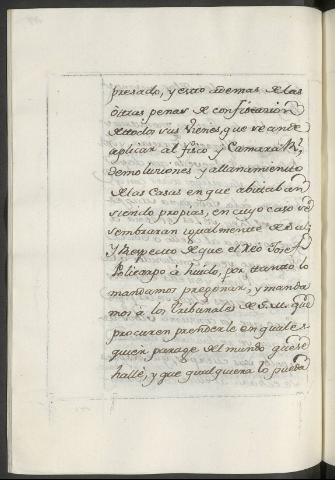 presado, y esto ademas de las
otras penas de confiscacion
de todos sus vienes, que se an de
aplicar al fisco y Camara Rl,
demoluciones y allanamiento
de las Casas en que abitaban
siendo propias, en cuyo caso se
sembraran igualmente de sal;
y Respecto de que el Reo Jose
Policarpo à huido, por ttanto lo
mandamos pregonar, y manda
mos à los Tribunales de S.M. que
procuren prenderle en quales
quier parage del mundo que se
halle, y que qualquiera lo pueda